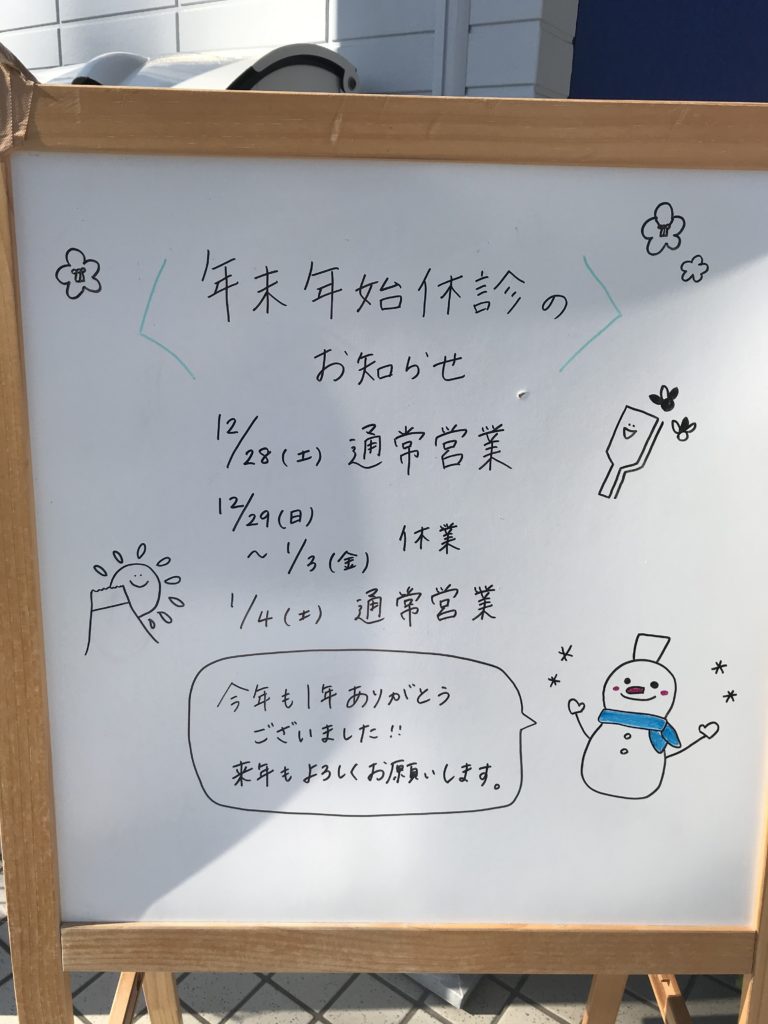 年末年始休診の
お知らせ
12/28(土) 通常営業
12/29(日)
～ 1/3(金) 休業
1/4(土) 通常営業
今年も1年ありがとう
ございました!!
来年もよろしくお願いします。